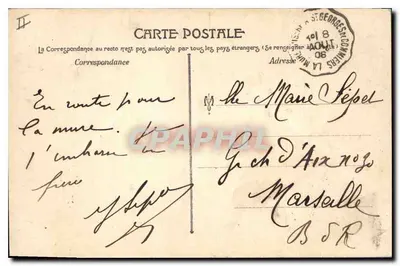 II
CARTE POSTALE
La Correspondance au recto n'est pas autorisée par tous les pays étrangers (Se renseigner
Correspondance
Adresse
ST GEORGES DE COMMIERS LA MURE
1E 8
AOUT
06
En route pour
la mure.
l'embrasse
frère
Mlle Marie Sépet
Gd ch d'Aix no 30
Marseille
B d R
CPAPHIL